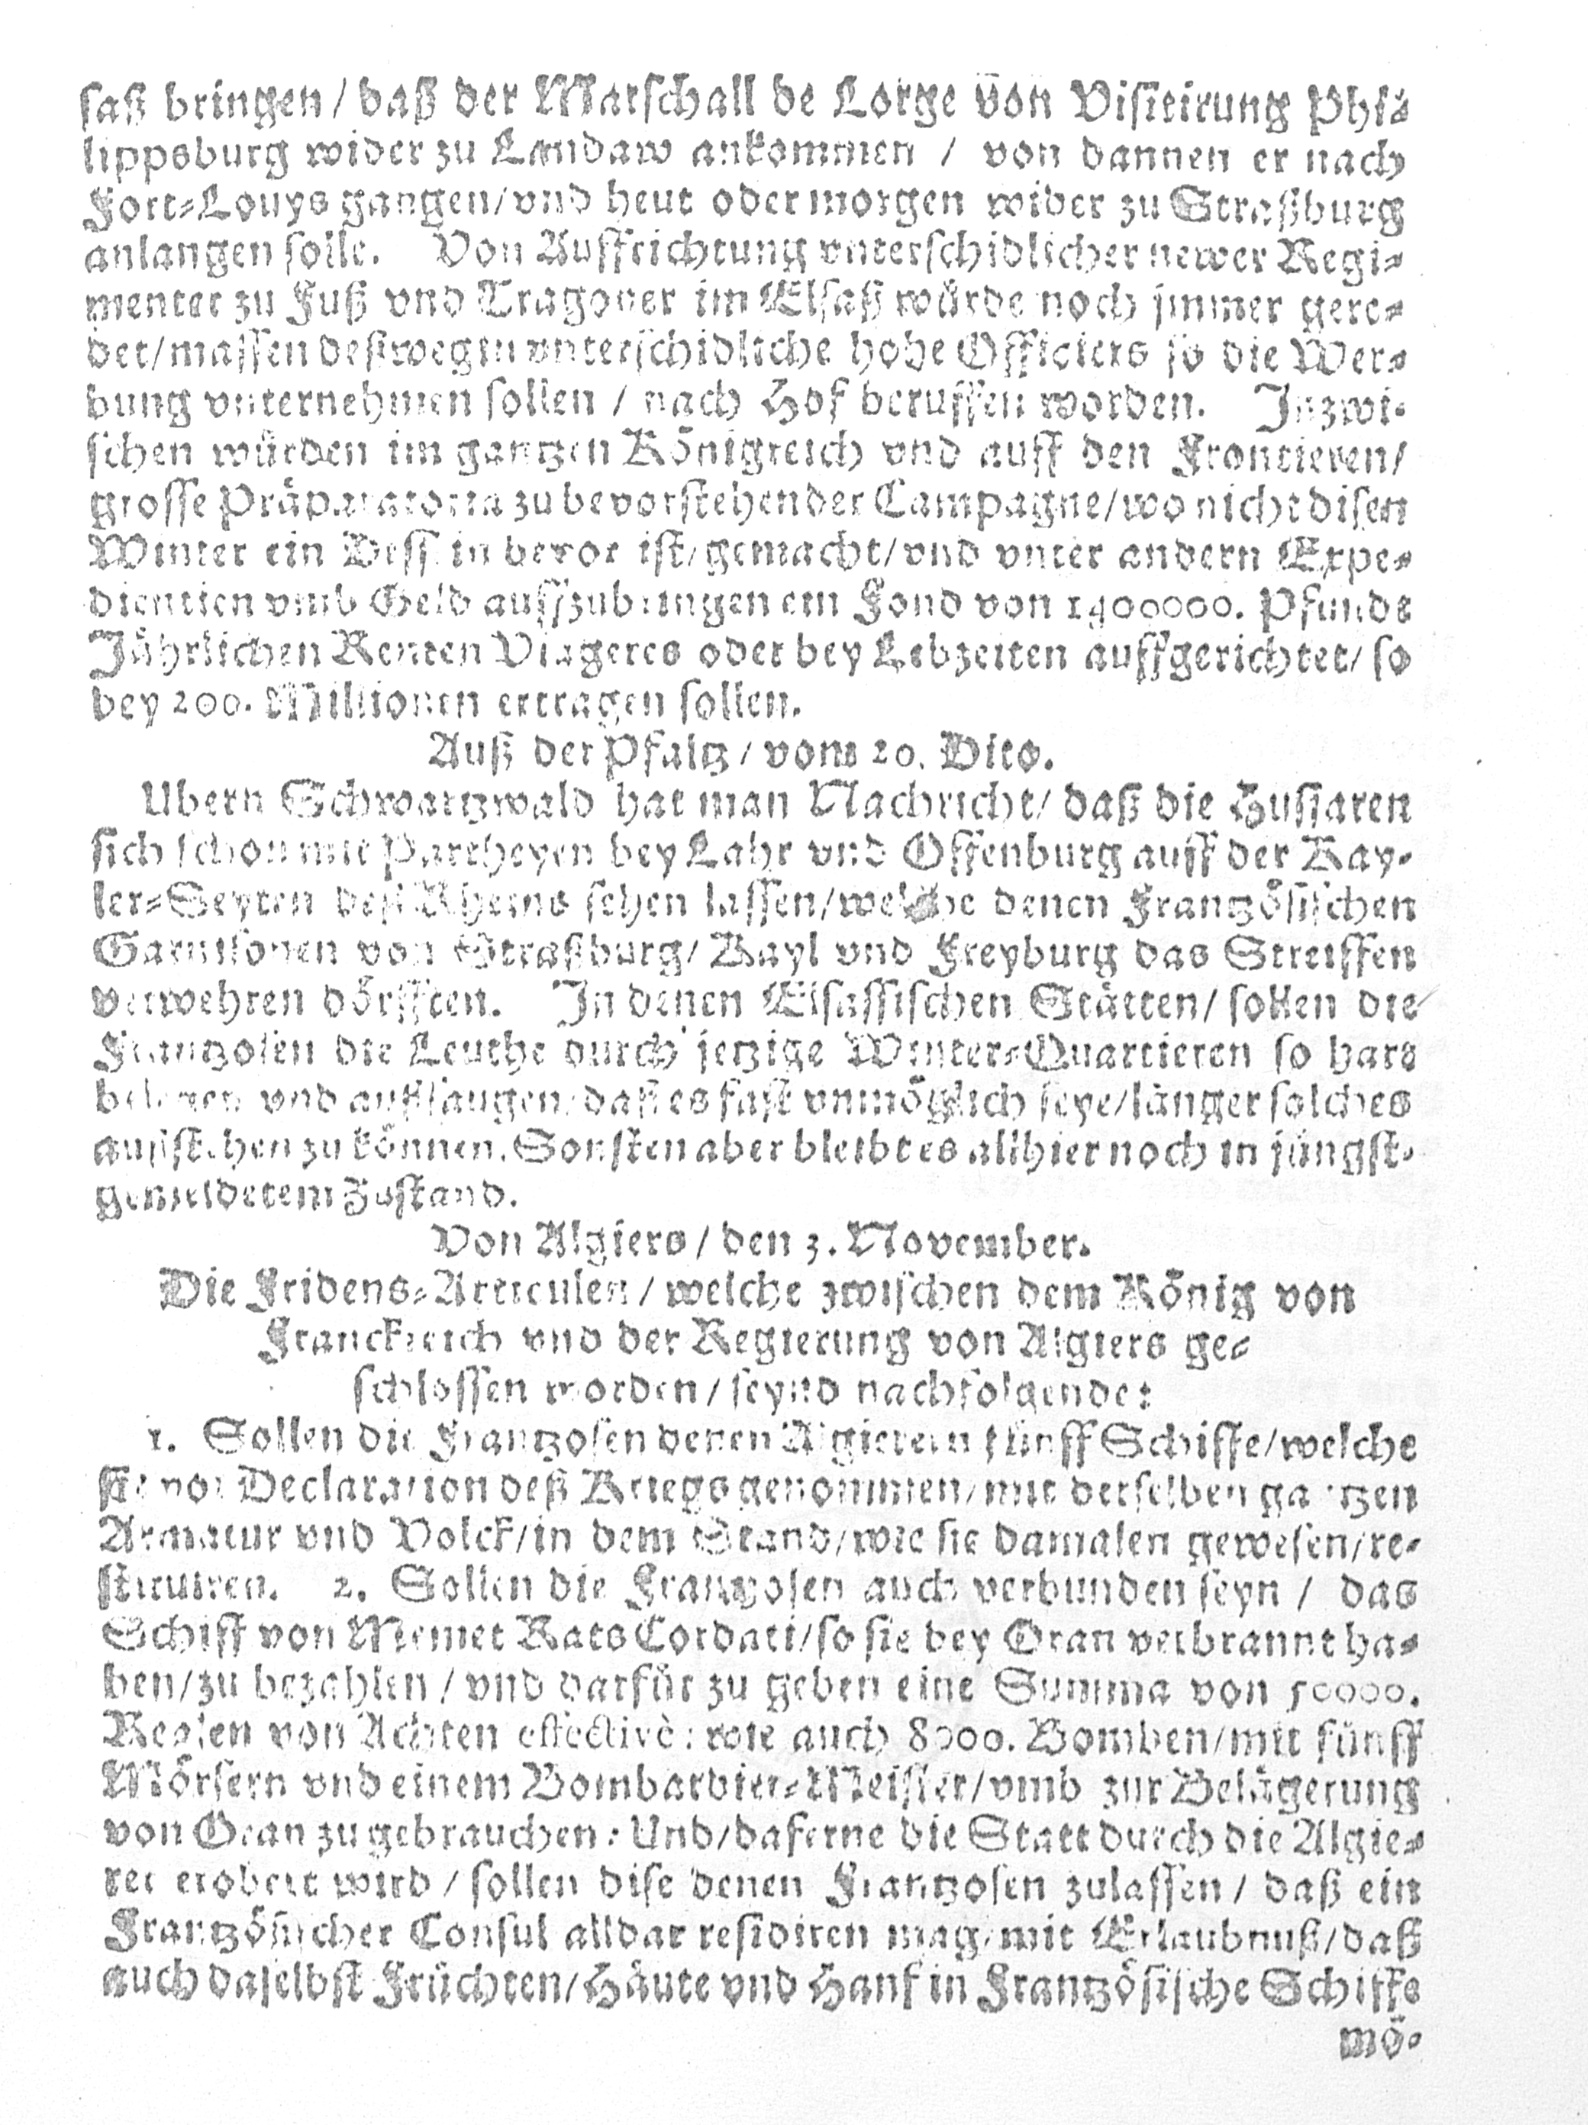 saß bringen / daß der Marschall de Lorge von Visitirung Phi-
lippsburg wider zu Landaw ankommen / von dannen er nach
Fort-Louys gangen / vnd heut oder morgen wider zu Straßburg
anlangen solle. Von Auffrichtung vnterschidlicher newer Regi-
menter zu Fuß vnd Tragoner im Elsaß wůrde noch jmmer gere-
det / massen deßwegen vnterschidliche hohe Officiers so die Wer-
bung vnternehmen sollen / nach Hof beruffen worden. Inzwi-
schen wůrden im gantzen Königreich vnd auff den Frontieren /
grosse Präparatoria zu bevorstehender Campagne / wo nicht disen
Winter ein Dessein bevor ist / gemacht / vnd vnter andern Expe-
dientien vmb Geld auffzubringen ein Fond von 1400000. Pfunds
Jährlichen Renten Viageres oder bey Lebzeiten auffgerichtet / so
bey 200. Millionen ertragen sollen.
Auß der Pfaltz / vom 20. Dito.
Ubern Schwartzwald hat man Nachricht / daß die Hussaren
sich schon mit Partheyen bey Lahr vnd Offenburg auff der Kay-
ser-Seyten deß Rheins sehen lassen / welche denen Frantzösischen
Garnisonen von Straßburg / Kayl vnd Freyburg das Streiffen
verwehren dörfften. In denen Elsassischen Stätten / sollen die
Frantzosen die Leuthe durch jetzige Winter-Quartieren so hart
belegen vnd außsaugen / daß es fast vnmöglich seye / länger solches
außstehen zu können. Sonsten aber bleibt es allhier noch in jüngst-
gemeldetem Zustand.
Von Algiers / den 3. November.
Die Fridens-Articulen / welche zwischen dem König von
Franckreich vnd der Regierung von Algiers ge-
schlossen worden / seynd nachfolgende:
1. Sollen die Frantzosen denen Algierern fünff Schiffe / welche
sie vor Declaration deß Kriegs genommen / mit derselben gantzen
Armatur vnd Volck / in dem Stand / wie sie damalen gewesen / re-
stituiren. 2. Sollen die Frantzosen auch verbunden seyn / das
Schiff von Memet Rats Cordati / so sie bey Oran verbrannt ha-
ben / zu bezahlen / vnd darfür zu geben eine Summa von 50000.
Realen von Achten effectivè: wie auch 8000. Bomben / mit fünff
Mörsern vnd einem Bombardier-Meister / vmb zur Belägerung
von Oran zu gebrauchen: Und / daferne die Statt durch die Algie-
rer erobert wird / sollen dise denen Frantzosen zulassen / daß ein
Frantzösischer Consul alldar residiren mag / mit Erlaubnuß / daß
auch daselbst Früchten / Häute vnd Hanf in Frantzösische Schiffe
mö-